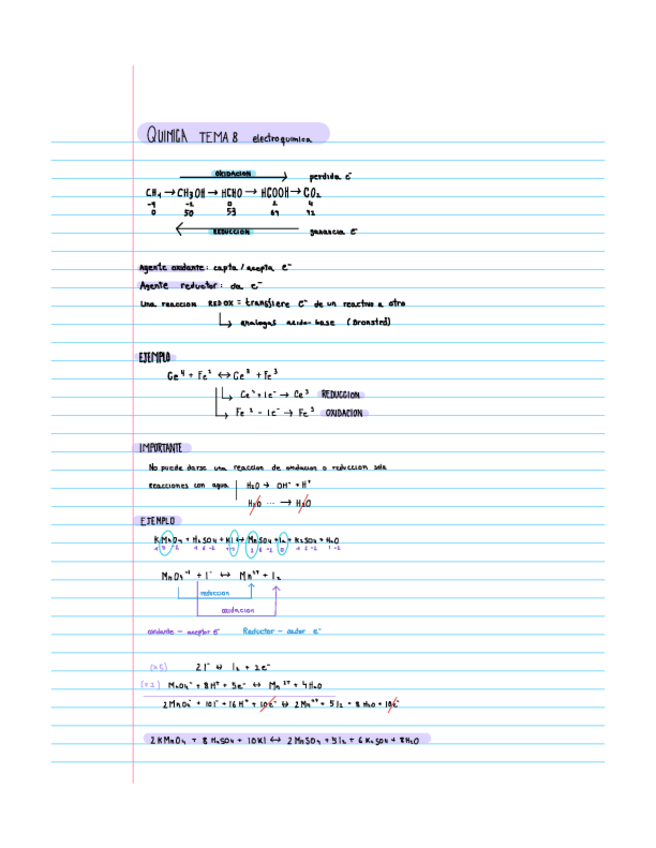 QUIMICA TEMA 8 electroquimica
OXIDACION perdida e⁻
CH₄ → CH3OH → HCHO → HCOOH → CO₂
-4 -2 0 2 4
0 50 53 69 72
REDUCCION ganancia e⁻
Agente oxidante: capta / acepta e⁻
Agente reductor: da e⁻
Una reaccion REDOX = transfiere e⁻ de un reactivo a otro
↳ analogas acido-base (Bronsted)
EJEMPLO
Ce⁴ + Fe² ↔ Ce³ + Fe³
↳ Ce⁴ + 1e⁻ → Ce³ REDUCCION
↳ Fe² - 1e⁻ → Fe³ OXIDACION
IMPORTANTE
No puede darse una reaccion de oxidacion o reduccion sola
reacciones con agua | H₂O → OH⁻ + H⁺
H₂O ... → H₂O
EJEMPLO
KMnO₄ + H₂SO₄ + KI ↔ MnSO₄ + I₂ + K₂SO₄ + H₂O
MnO₄⁻¹ + I⁻ ↔ Mn²⁺ + I₂
reduccion
oxidacion
oxidante - aceptor e⁻ Reductor - dador e⁻
(×5) 2I⁻ ↔ I₂ + 2e⁻
(×2) MnO₄⁻ + 8H⁺ + 5e⁻ ↔ Mn²⁺ + 4H₂O
2MnO₄⁻ + 10I⁻ + 16H⁺ + 10e⁻ ↔ 2Mn²⁺ + 5I₂ + 8H₂O + 10e⁻
2KMnO₄ + 8H₂SO₄ + 10KI ↔ 2MnSO₄ + 5I₂ + 6K₂SO₄ + 8H₂O